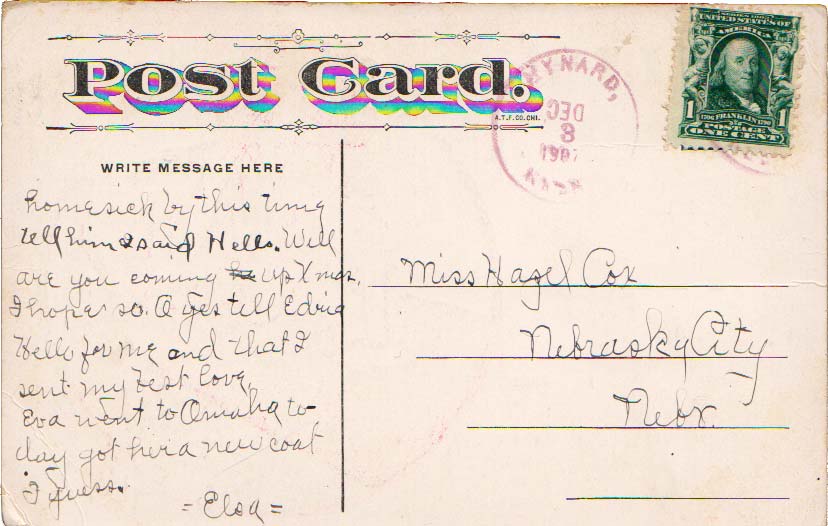 Post Card.
A.T.F.CO.CHI.
WRITE MESSAGE HERE
homesick by this time
tell him I said Hello. Well
are you coming up Xmas.
I hope so. O yes tell
Hello for me and that I
sent my best love.
Eva went to Omaha to-
day got her a new coat
I guess.
=Elsa=
Miss Hazel Cox
Nebrasky City
Nebr.
MYNARD,
DEC
3
1907
NEBR
SERIES 1902
UNITED STATES OF
AMERICA
1 1
1706 FRANKLIN 1790
POSTAGE
ONE CENT